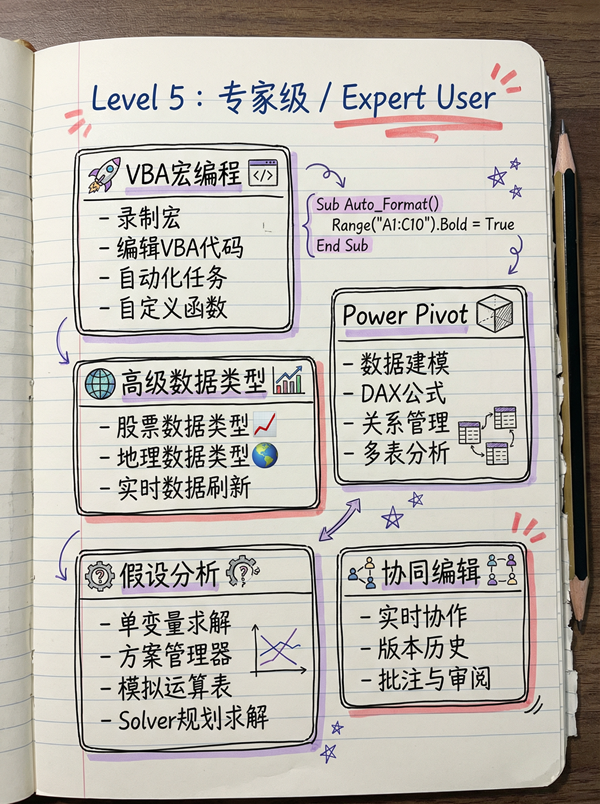 Level 5：专家级 / Expert User
VBA宏编程
</>
- 录制宏
- 编辑VBA代码
- 自动化任务
- 自定义函数
Sub Auto_Format()
Range("A1:C10").Bold = True
End Sub
Power Pivot
- 数据建模
- DAX公式
- 关系管理
- 多表分析
高级数据类型
- 股票数据类型
- 地理数据类型
- 实时数据刷新
假设分析
- 单变量求解
- 方案管理器
- 模拟运算表
- Solver规划求解
协同编辑
- 实时协作
- 版本历史
- 批注与审阅